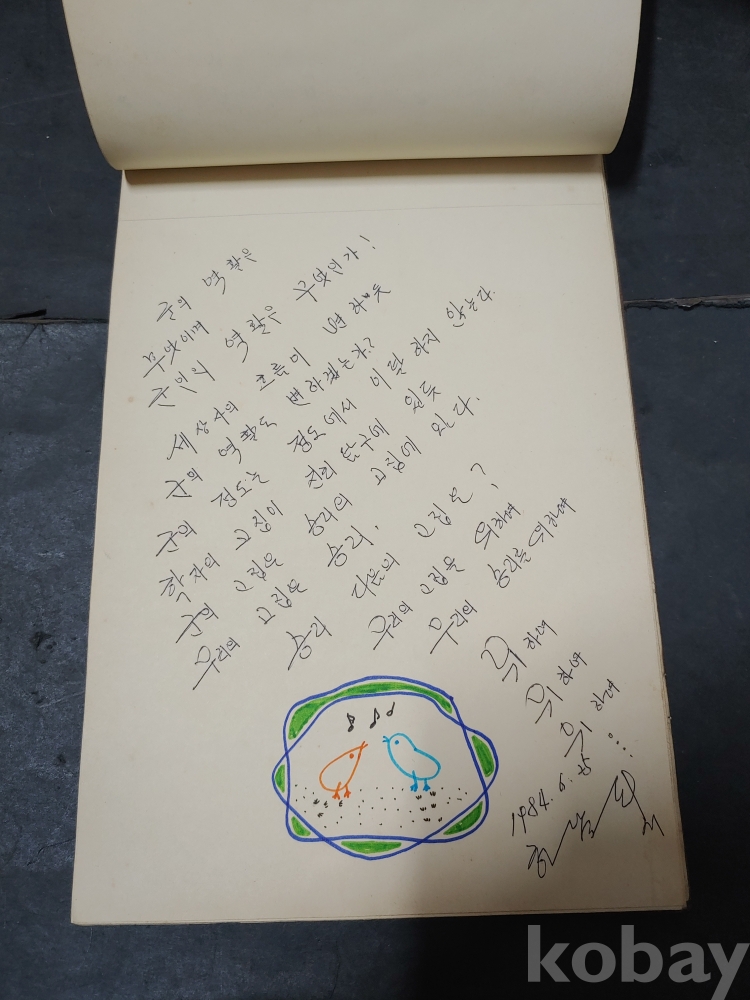 군의 역활은
무엇이며
군인의 역활은 무엇인가!
세상사의 흐름이 변하듯
군의 역활도 변하겠는가?
군의 정도는 정도에서 이탈하지 않는다.
학자의 고집이 진리탐구에 있듯
군의 고집은 승리의 고집에 있다.
우리의 고집은 승리,
승리 다음의 고집은?
우리의 고집을 위하여
우리의 승리를 위하여
위하여
위하여
위하여
1984. 6. 25
kobay